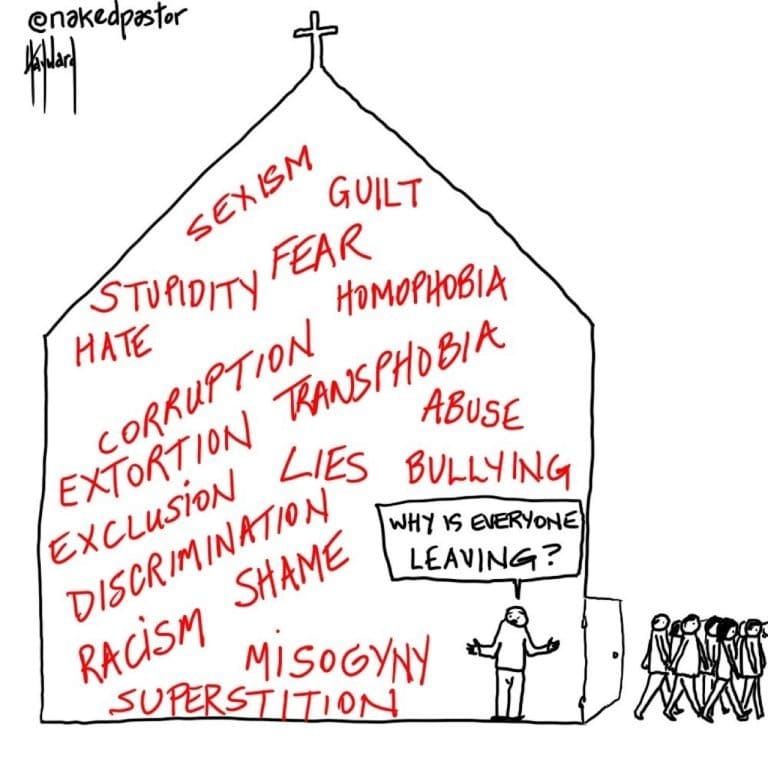 @nakedpastor
Hayward
SEXISM
GUILT
STUPIDITY
FEAR
HATE
HOMOPHOBIA
CORRUPTION
TRANSPHOBIA
EXTORTION
ABUSE
LIES
BULLYING
EXCLUSION
DISCRIMINATION
WHY IS EVERYONE
LEAVING?
SHAME
RACISM
MISOGYNY
SUPERSTITION